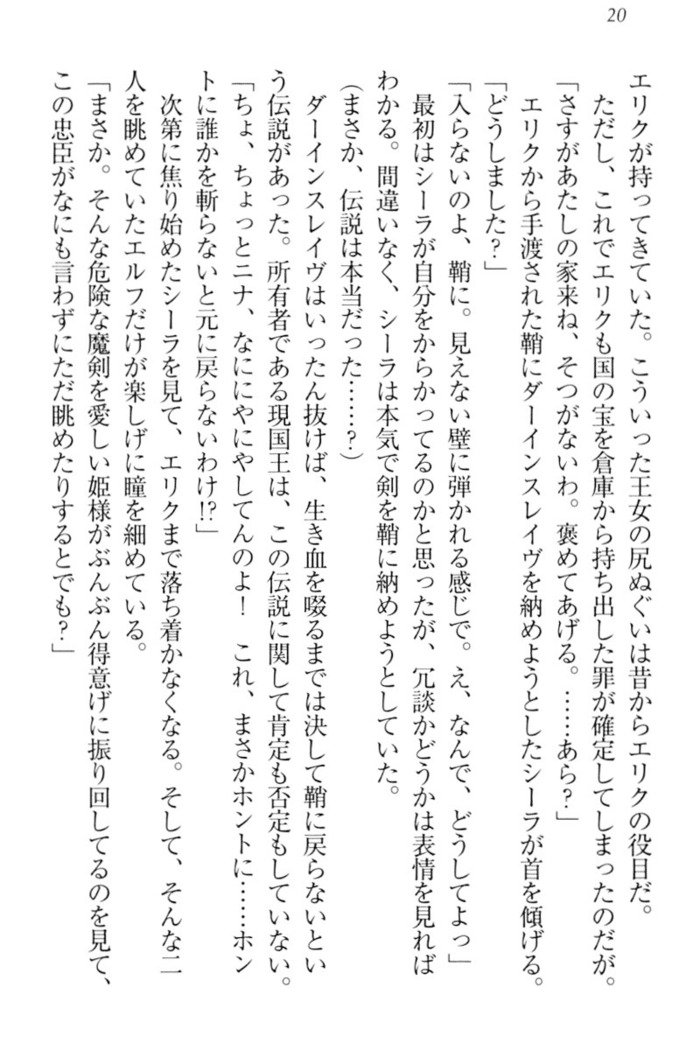 20
エリクが持ってきていた。こういった王女の尻ぬぐいは昔からエリクの役目だ。
ただし、これでエリクも国の宝を倉庫から持ち出した罪が確定してしまったのだが。
「さすがあたしの家来ね、そつがないわ。褒めてあげる。……あら？」
エリクから手渡された鞘にダーインスレイヴを納めようとしたシーラが首を傾げる。
「どうしました？」
「入らないのよ、鞘に。見えない壁に弾かれる感じで。え、なんで、どうしてよっ」
最初はシーラが自分をからかってるのかと思ったが、冗談かどうかは表情を見れば
わかる。間違いなく、シーラは本気で剣を鞘に納めようとしていた。
(まさか、伝説は本当だった……？)
ダーインスレイヴはいったん抜けば、生き血を啜るまでは決して鞘に戻らないとい
う伝説があった。所有者である現国王は、この伝説に関して肯定も否定もしていない。
「ちょ、ちょっとニナ、なににやにやしてんのよ！　これ、まさかホントに……ホン
トに誰かを斬らないと元に戻らないわけ!?」
次第に焦り始めたシーラを見て、エリクまで落ち着かなくなる。そして、そんな二
人を眺めていたエルフだけが楽しげに瞳を細めている。
「まさか。そんな危険な魔剣を愛しい姫様がぶんぶん得意げに振り回してるのを見て、
この忠臣がなにも言わずにただ眺めたりするとでも？」